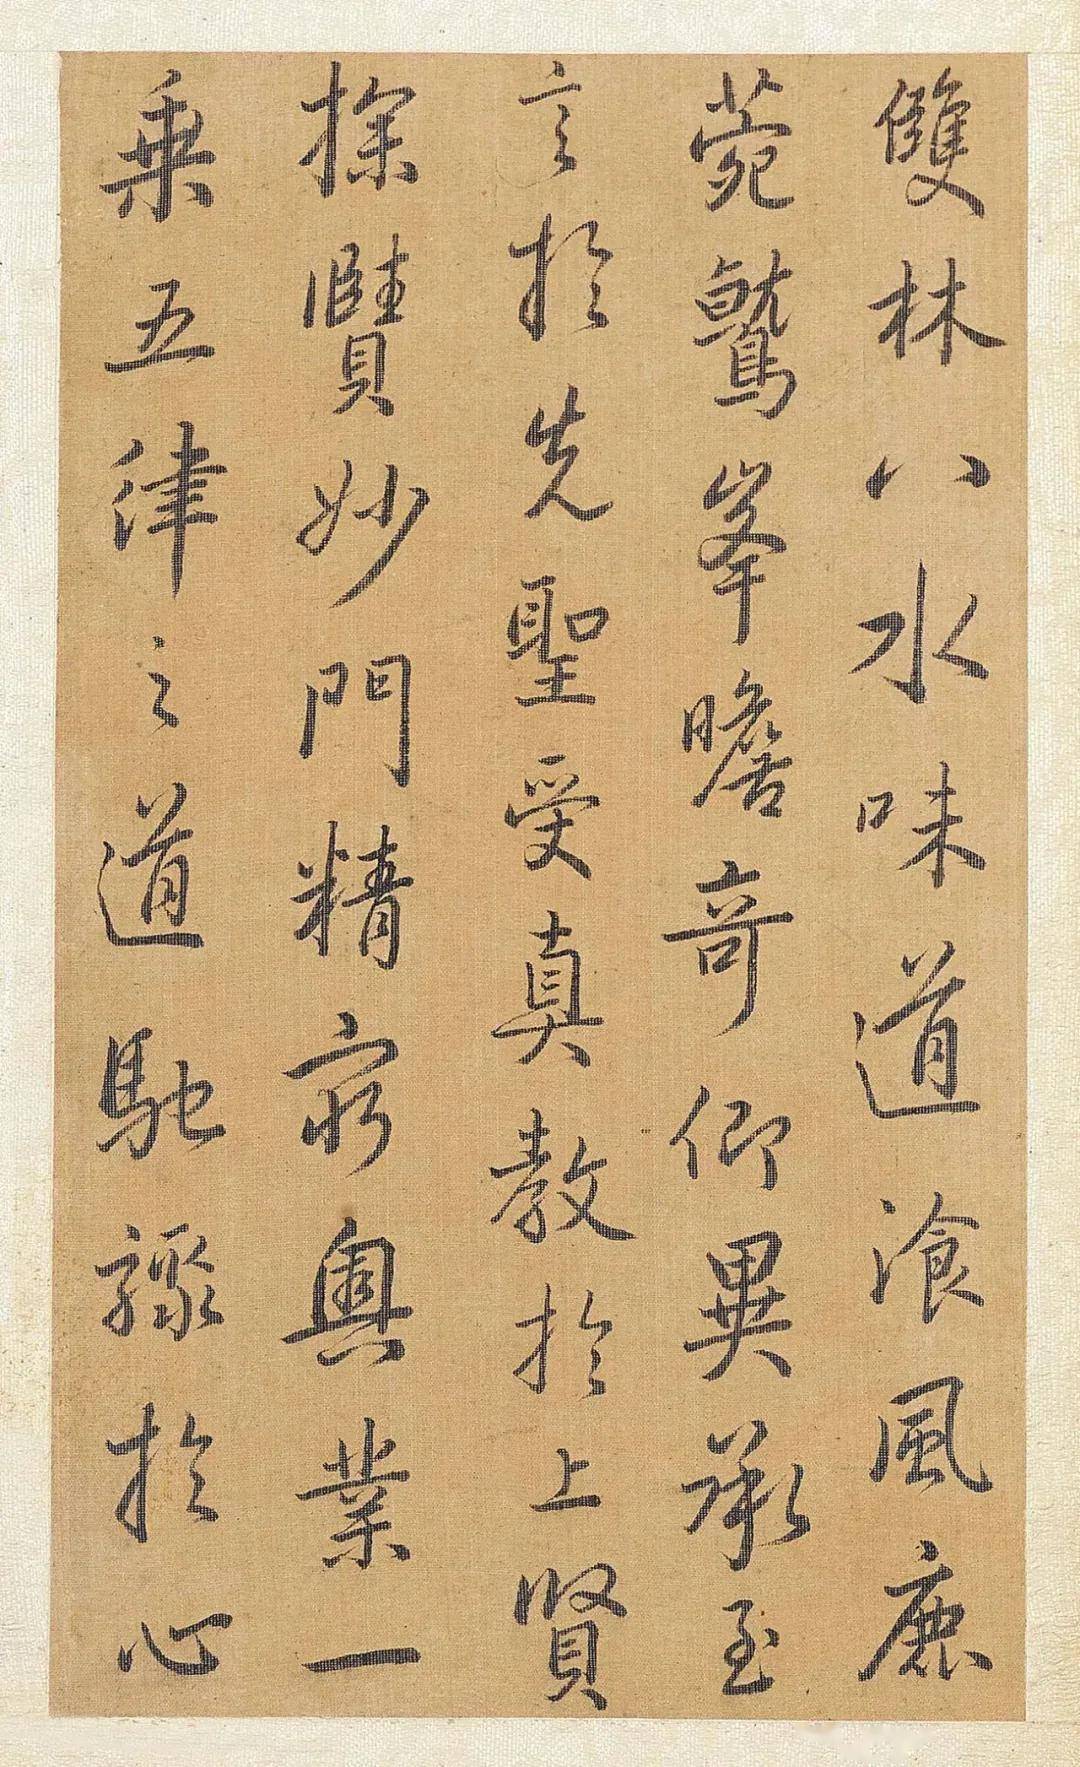 雙林八水味道飡風鹿
菀鷲峯瞻奇仰異承至
言於先聖受真教於上賢
探賾妙門精窮奧業一
乘五律之道馳驟於心